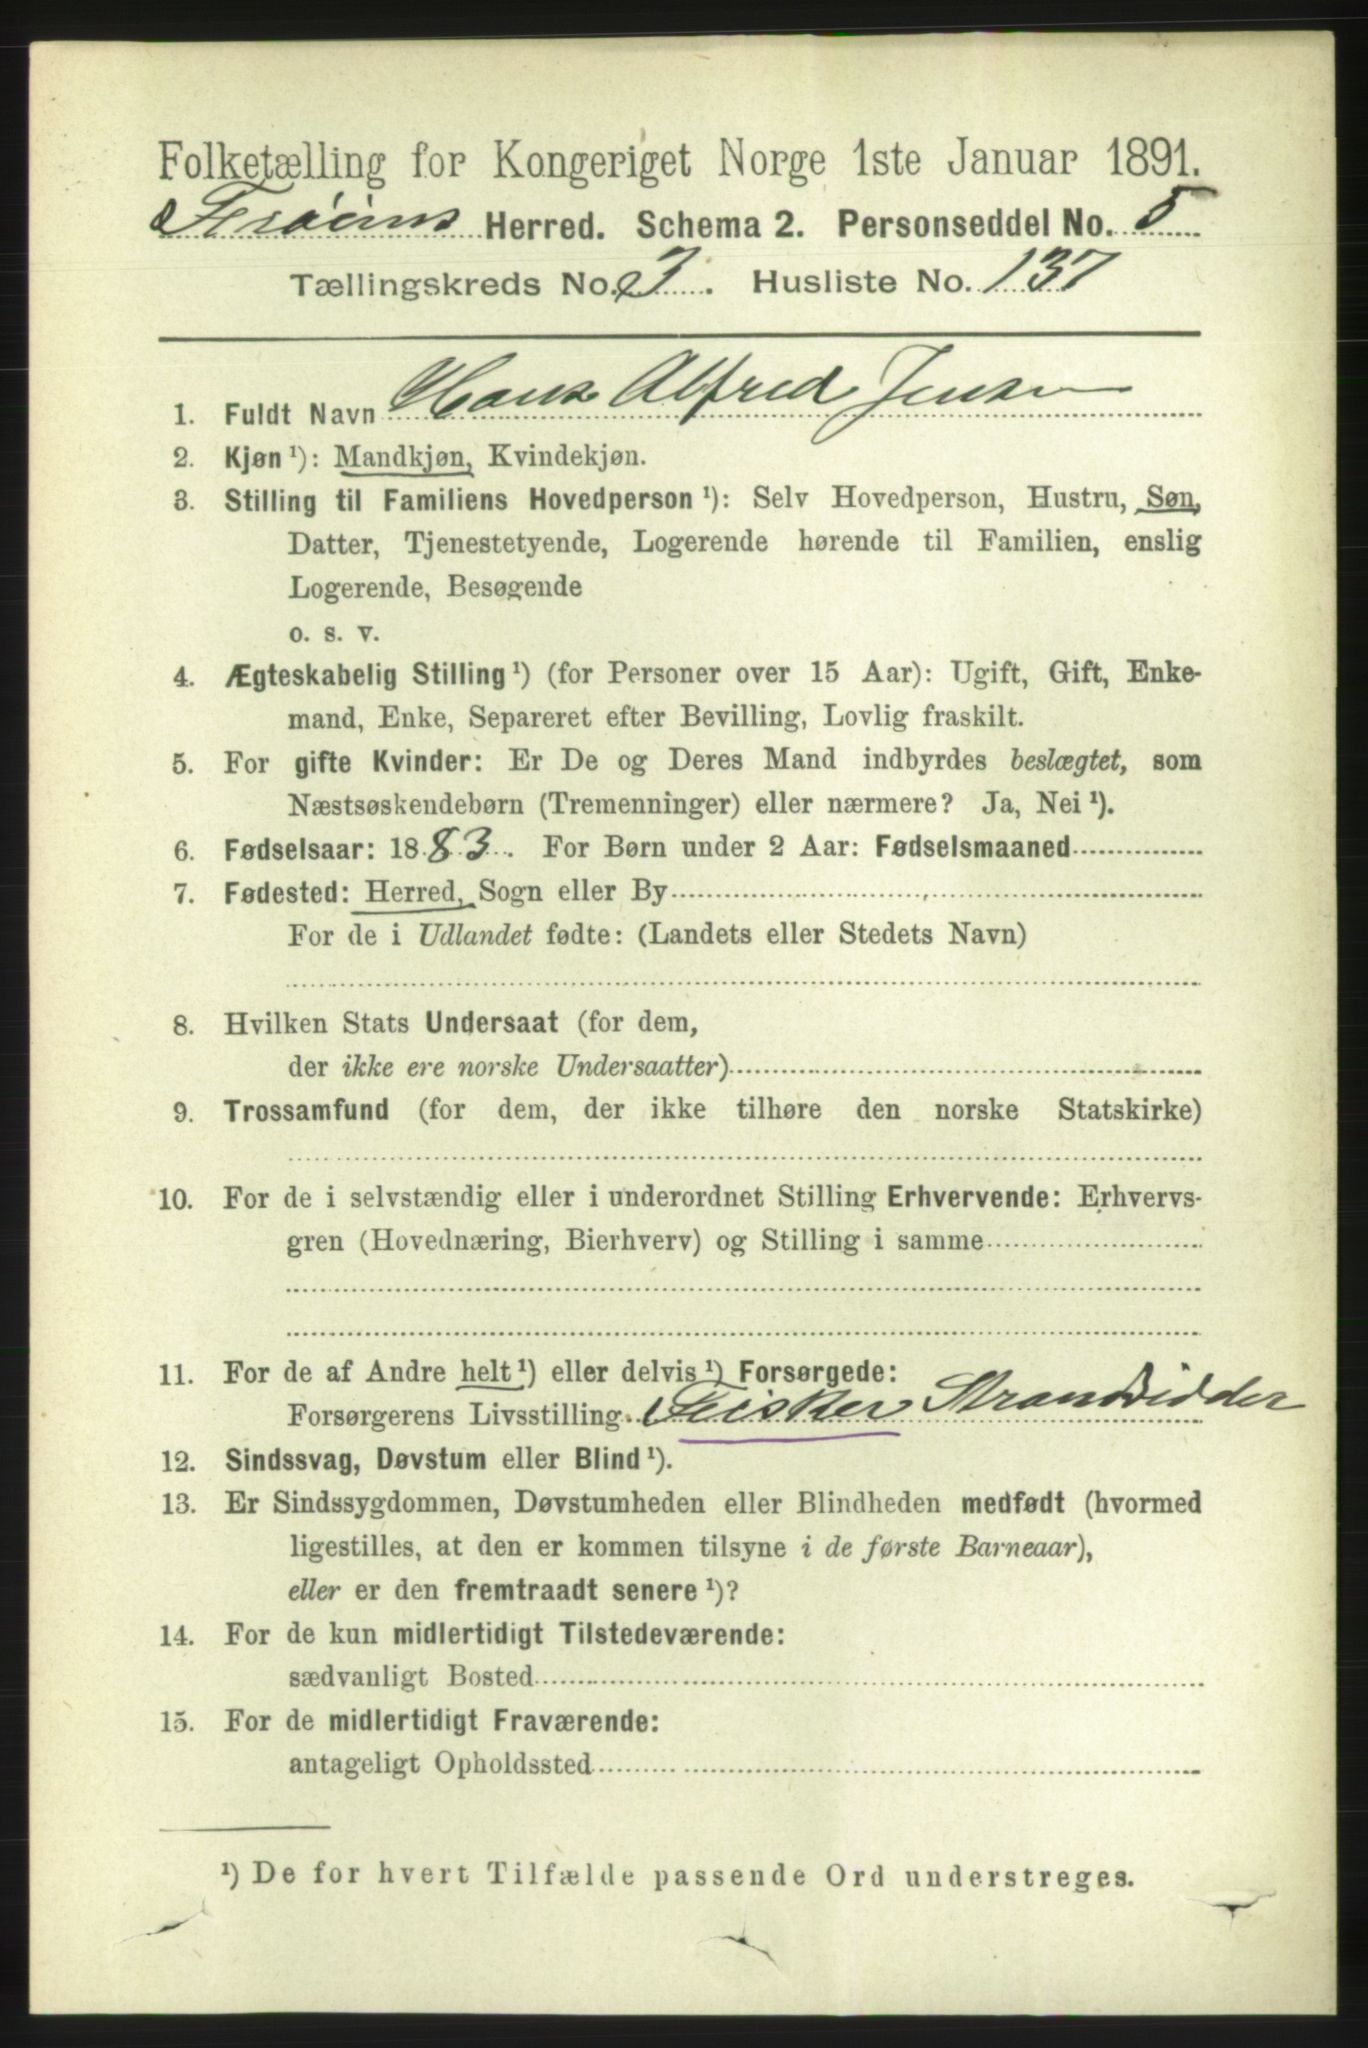 Folketælling for Kongeriget Norge 1ste Januar 1891.
Herred. Schema 2. Personseddel No. 5
Tællingskreds No. 3. Husliste No. 137
1. Fuldt Navn Hans Alfred Jensen
2. Kjøn ¹): Mandkjøn, Kvindekjøn.
3. Stilling til Familiens Hovedperson ¹): Selv Hovedperson, Hustru, Søn,
Datter, Tjenestetyende, Logerende hørende til Familien, enslig
Logerende, Besøgende
o. s. v.
4. Ægteskabelig Stilling ¹) (for Personer over 15 Aar): Ugift, Gift, Enke-
mand, Enke, Separeret efter Bevilling, Lovlig fraskilt.
5. For gifte Kvinder: Er De og Deres Mand indbyrdes beslægtet, som
Næstsøskendebørn (Tremenninger) eller nærmere? Ja, Nei ¹).
6. Fødselsaar: 1883. For Børn under 2 Aar: Fødselsmaaned
7. Fødested: Herred, Sogn eller By
For de i Udlandet fødte: (Landets eller Stedets Navn)
8. Hvilken Stats Undersaat (for dem,
der ikke ere norske Undersaatter)
9. Trossamfund (for dem, der ikke tilhøre den norske Statskirke)
10. For de i selvstændig eller i underordnet Stilling Erhvervende: Erhvervs-
gren (Hovednæring, Bierhverv) og Stilling i samme
11. For de af Andre helt ¹) eller delvis ¹) Forsørgede:
Forsørgerens Livsstilling Fisker Strandsidder
12. Sindssvag, Døvstum eller Blind ¹).
13. Er Sindssygdommen, Døvstumheden eller Blindheden medfødt (hvormed
ligestilles, at den er kommen tilsyne i de første Barneaar),
eller er den fremtraadt senere ¹)?
14. For de kun midlertidigt Tilstedeværende:
sædvanligt Bosted
15. For de midlertidigt Fraværende:
antageligt Opholdssted
¹) De for hvert Tilfælde passende Ord understreges.